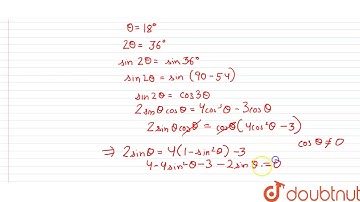 θ=18°
2θ= 36°
sin 2θ = sin 36°
sin2θ = sin (90-54)
sin2θ = cos3θ
2sinθcosθ = 4cos³θ-3cosθ
2sinθcosθ = cosθ(4cos²θ-3)
cosθ≠0
⇒ 2sinθ = 4(1-sin²θ)-3
4-4sin²θ-3-2sinθ=0
doubtnut